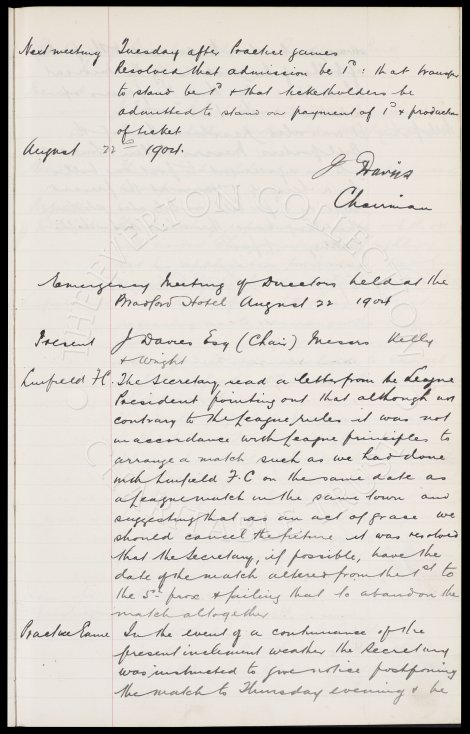 Next meeting Tuesday after Practice games
Resolved that admission be 1D: that transfer
to stand be 1D & that ticketholders be
admitted to stand on payment of 1D & production
of ticket
August 22nd 1904.
J Davies
Chairman
Emergency Meeting of Directors held at the
Bradford Hotel August 22 1904
Present J Davies Esq (Chair) Messrs Kelly
& Wright
Linfield FC. The Secretary read a letter from the League
President pointing out that although not
contrary to the League rules it was not
in accordance with League principles to
arrange a match such as we had done
with Linfield F.C on the same date as
a League match in the same town and
suggesting that as an act of grace we
should cancel the fixture it was resolved
that the Secretary, if possible, have the
date of the match altered from the 1st to
the 5th prox & failing that to abandon the
match altogether
Practice Game In the event of a continuance of the
present inclement weather the Secretary
was instructed to give notice postponing
the match to Thursday evening & be
THE EVERTON COLLECTION